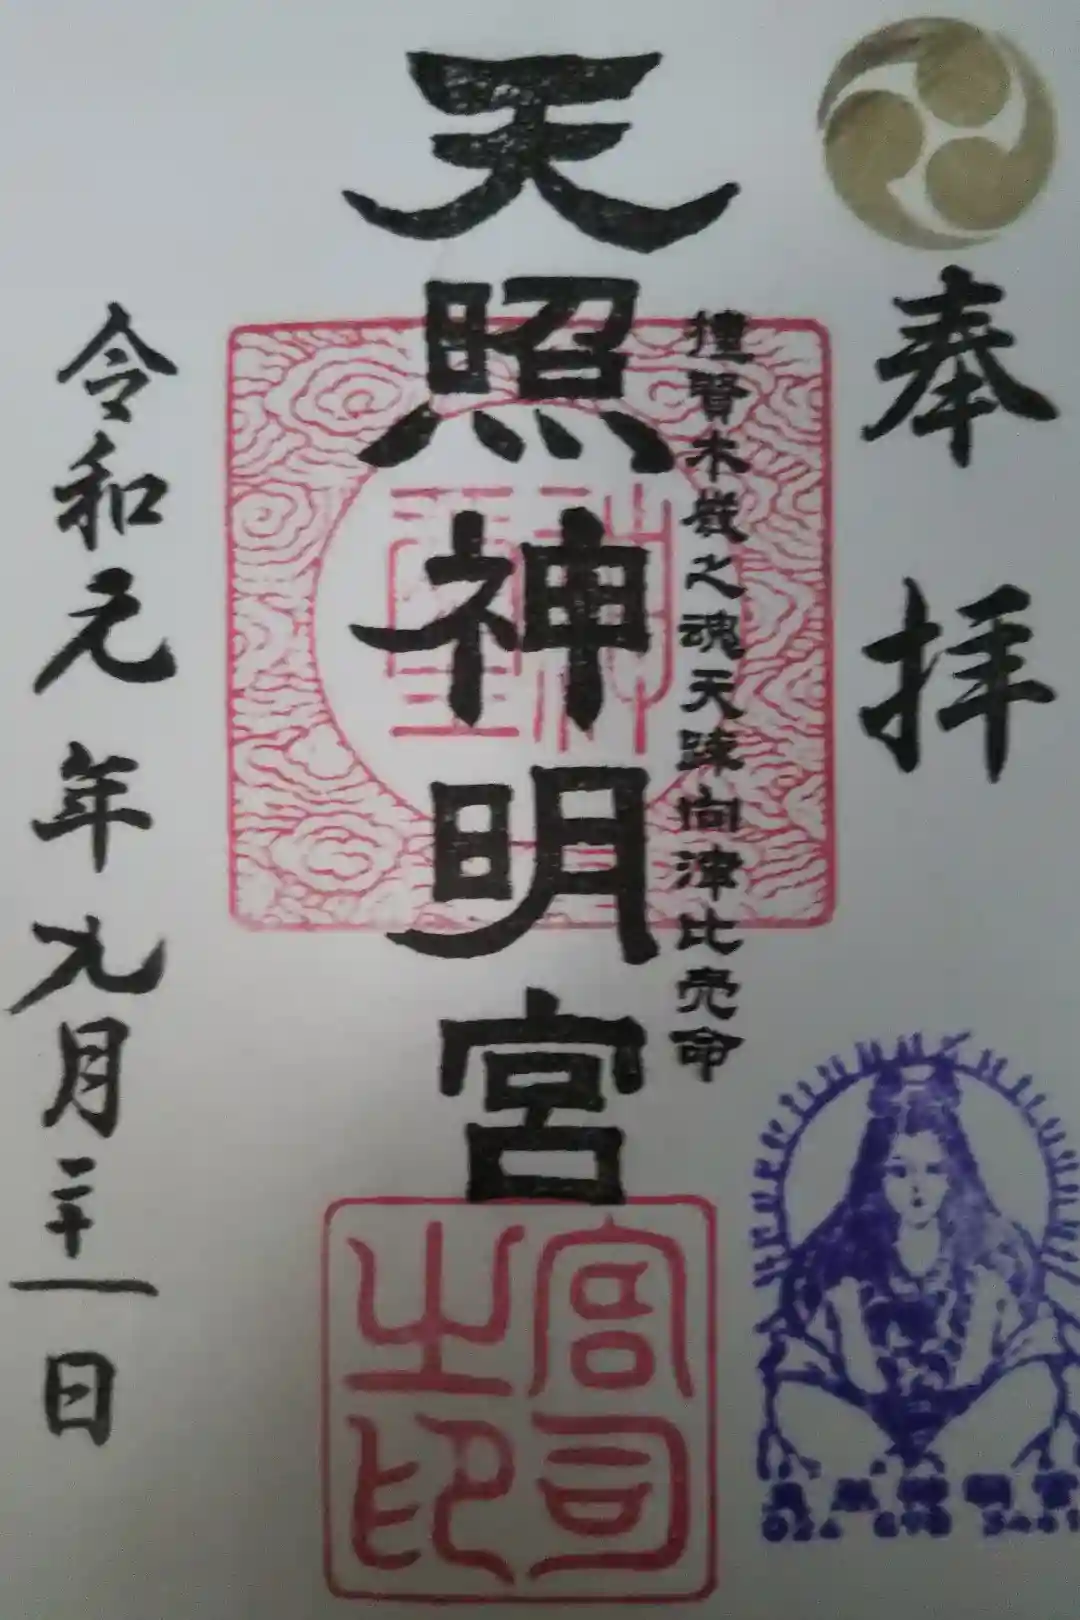 奉拝
撞賢木厳之魂天疎向津比売命
天照神明宮
宮司之印
令和元年九月二十一日